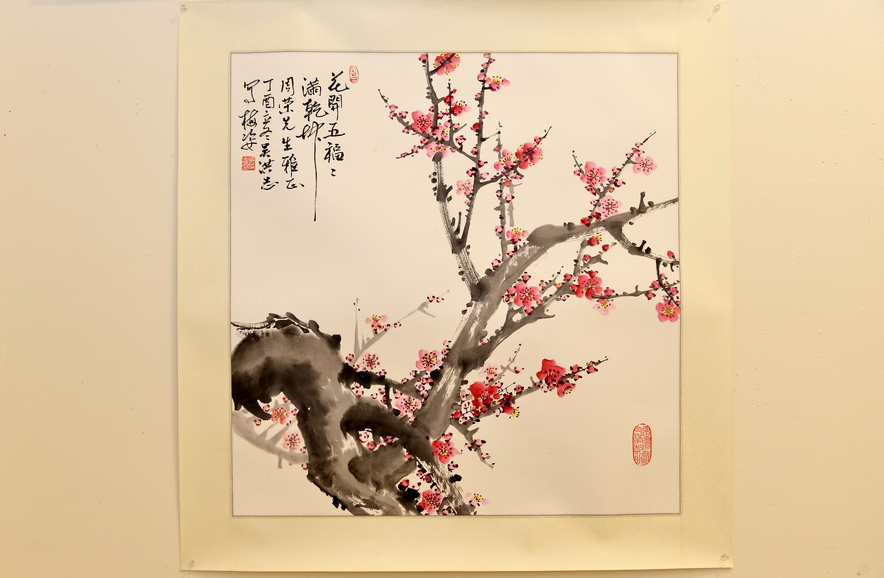 花開五福〻
滿乾坤
周荣先生雅正
丁酉立冬吴洪志
写梅姿